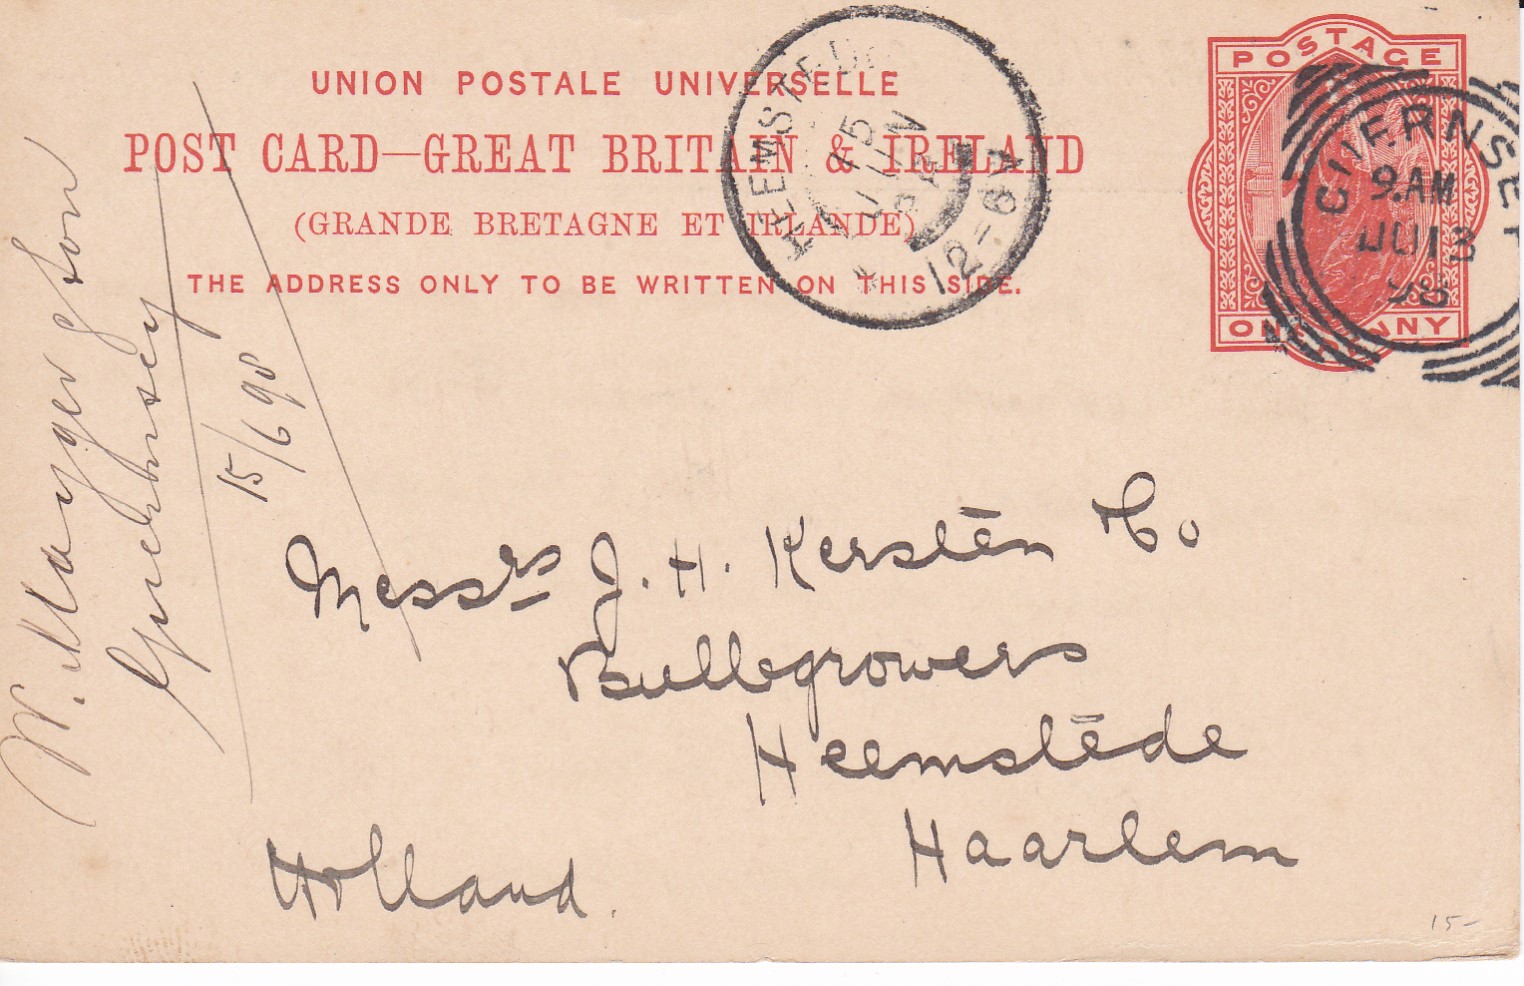 UNION POSTALE UNIVERSELLE
POST CARD—GREAT BRITAIN & IRELAND
(GRANDE BRETAGNE ET IRLANDE)
THE ADDRESS ONLY TO BE WRITTEN ON THIS SIDE.
POSTAGE
ONE PENNY
GUERNSEY
9.AM
JU 13
98
HEEMSTEDE
15
JUN
98
12-6N
W. Mauger & Son
Guernsey
15/6 98
Messrs J. H. Kerstēn Co
Bulbgrowers
Heemstēde
Haarlem
Holland.
15-